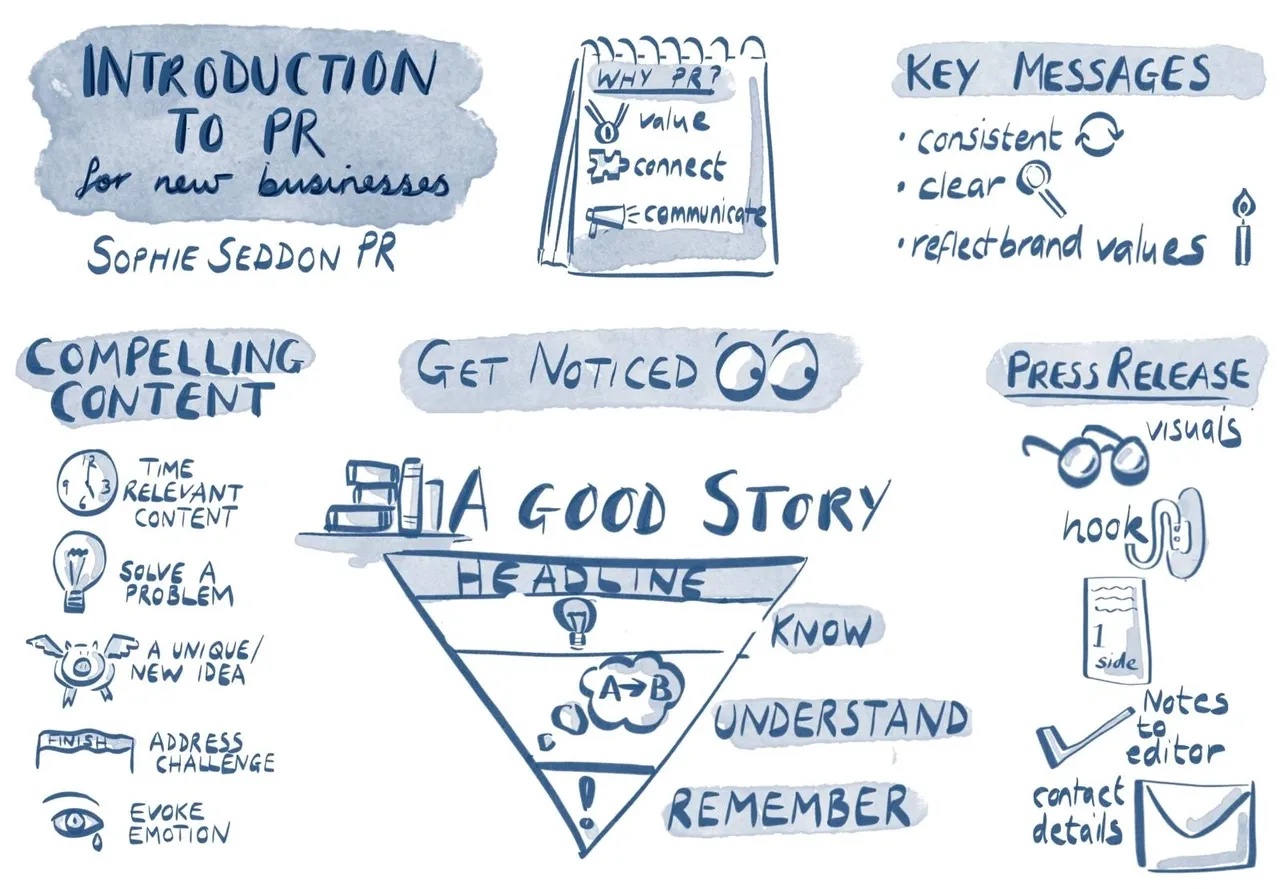 INTRODUCTION
TO PR
for new businesses
SOPHIE SEDDON PR
WHY PR?
value
connect
communicate
KEY MESSAGES
• consistent
• clear
• reflect brand values
COMPELLING
CONTENT
12
9 3
6
TIME
RELEVANT
CONTENT
SOLVE A
PROBLEM
A UNIQUE/
NEW IDEA
FINISH
ADDRESS
CHALLENGE
EVOKE
EMOTION
GET NOTICED
A GOOD STORY
HEADLINE
KNOW
A→B
UNDERSTAND
!
REMEMBER
PRESS RELEASE
visuals
hook
1
side
Notes
to
editor
contact
details